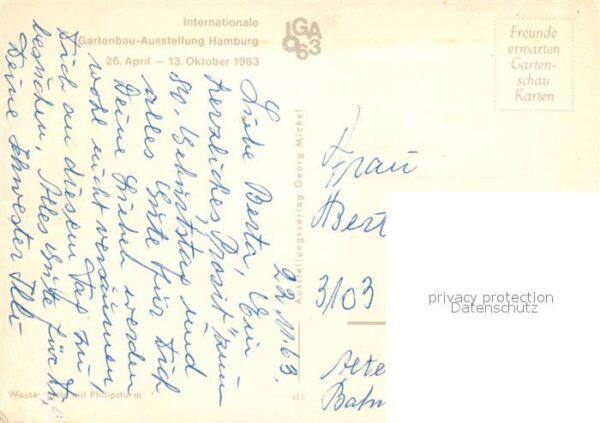 Internationale
Gartenbau-Ausstellung Hamburg
26. April — 13. Oktober 1963
IGA 63
Freunde
erwarten
Garten-
schau
Karten
22.11.63.
Liebe Berta, Ein
herzliches "Prosit" zum
80. Geburtstag und
alles Gute für Dich
Deine Lieben werden
wohl nicht versäumen,
Dich an diesem Tag zu
besuchen. Alles Gute für Dich
Deine Schwester Elli
Ausstellungsverlag Georg Michel
Frau
Bert
3103
Alte
Bahn
privacy protection
Datenschutz
Wasserspiele mit Philipsturm
413